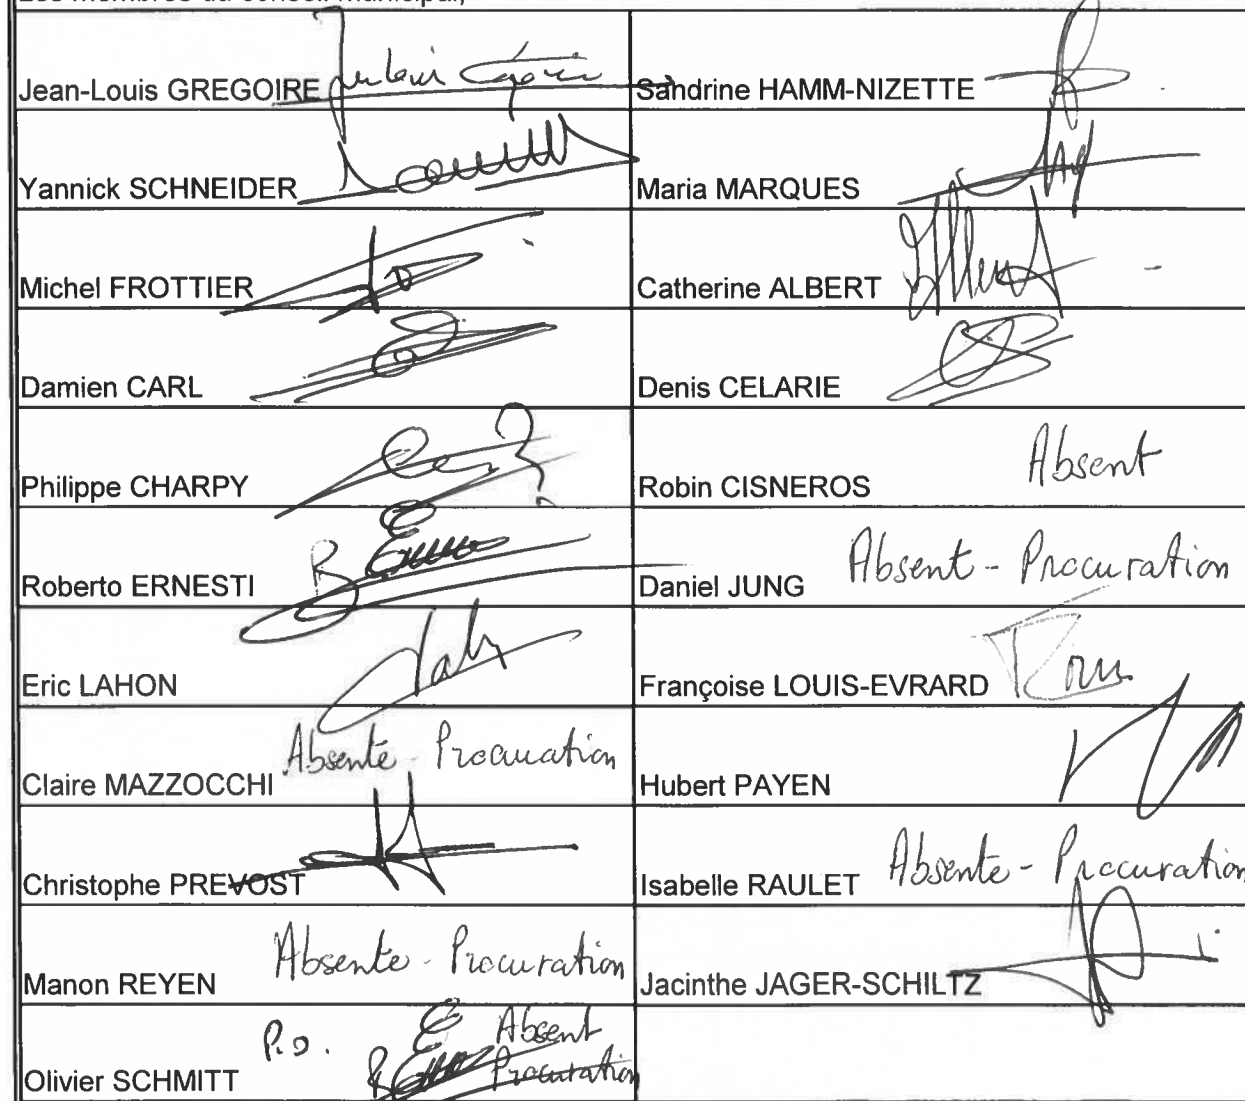 Les membres du conseil municipal,
Jean-Louis GREGOIRE
Sandrine HAMM-NIZETTE
Yannick SCHNEIDER
Maria MARQUES
Michel FROTTIER
Catherine ALBERT
Damien CARL
Denis CELARIE
Philippe CHARPY
Robin CISNEROS Absent
Roberto ERNESTI
Daniel JUNG Absent - Procuration
Eric LAHON
Françoise LOUIS-EVRARD
Claire MAZZOCCHI Absente - Procuration
Hubert PAYEN
Christophe PREVOST
Isabelle RAULET Absente - Procuration
Manon REYEN Absente - Procuration
Jacinthe JAGER-SCHILTZ
Olivier SCHMITT P.O. Absent
Procuration